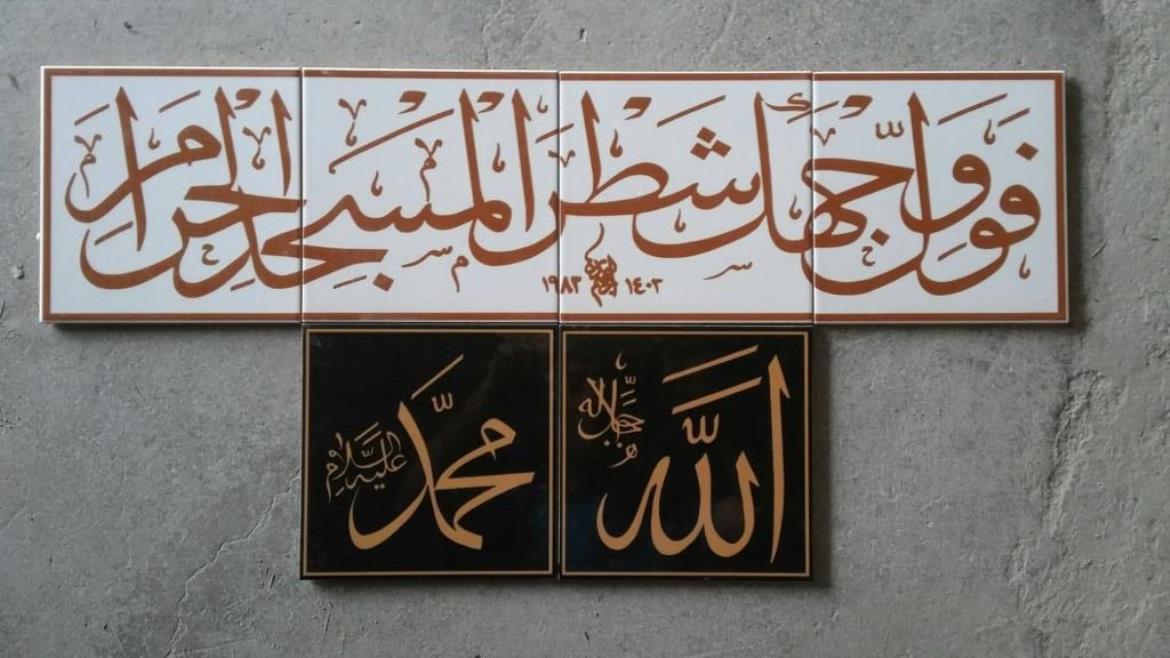 فَوَلِّ وَجْهَكَ شَطْرَ الْمَسْجِدِ الْحَرَامِ
١٤٠٣ ١٩٨٣
الله جل جلاله
محمد عليه السلام